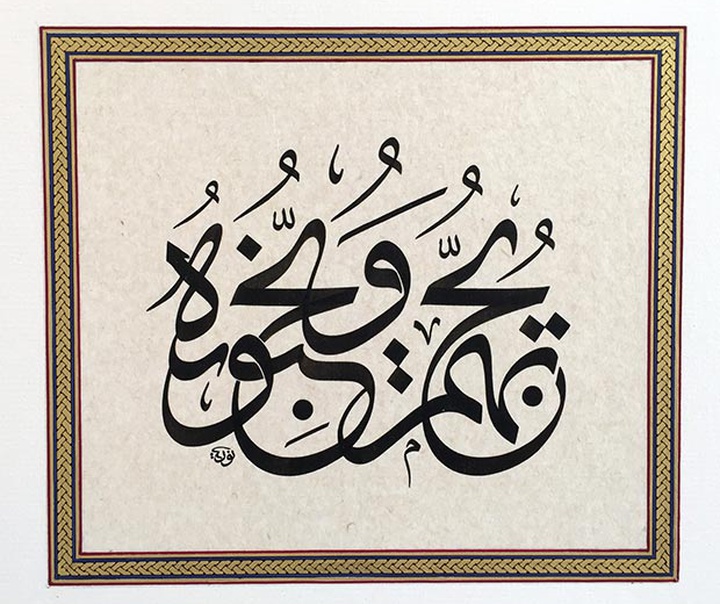 يُحِبُّهُمْ وَيُحِبُّونَهُ
نوريه